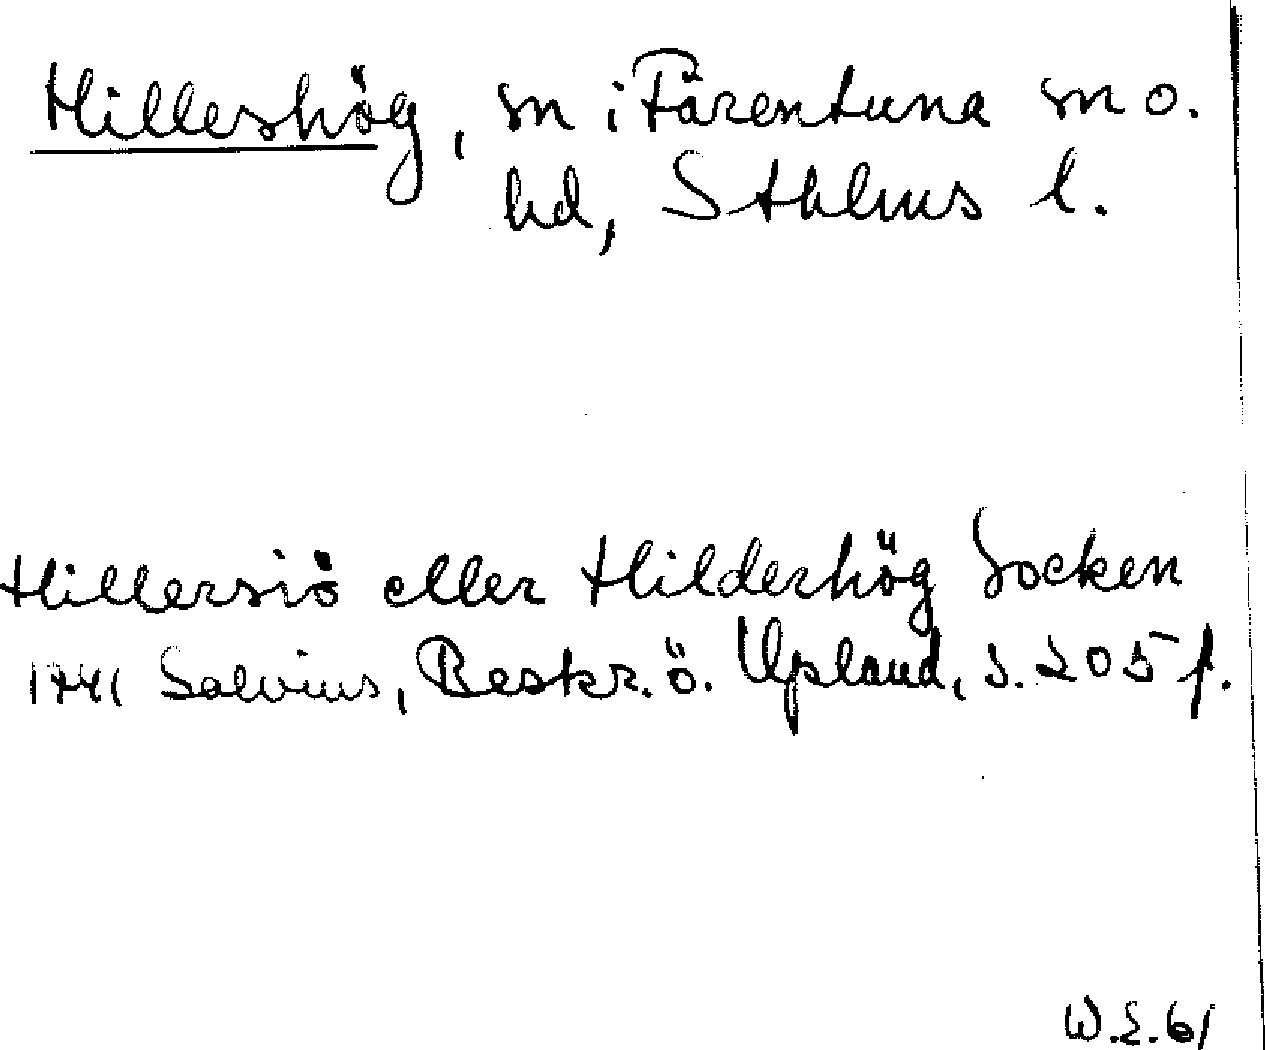 Hilleshög, sn i Färentuna sn o.
hd, Sthlms l.
Hillersiö eller Hilderhög Socken
1741 Salvius, Beskr. ö. Upland, s. 205 f.
W.E. 61